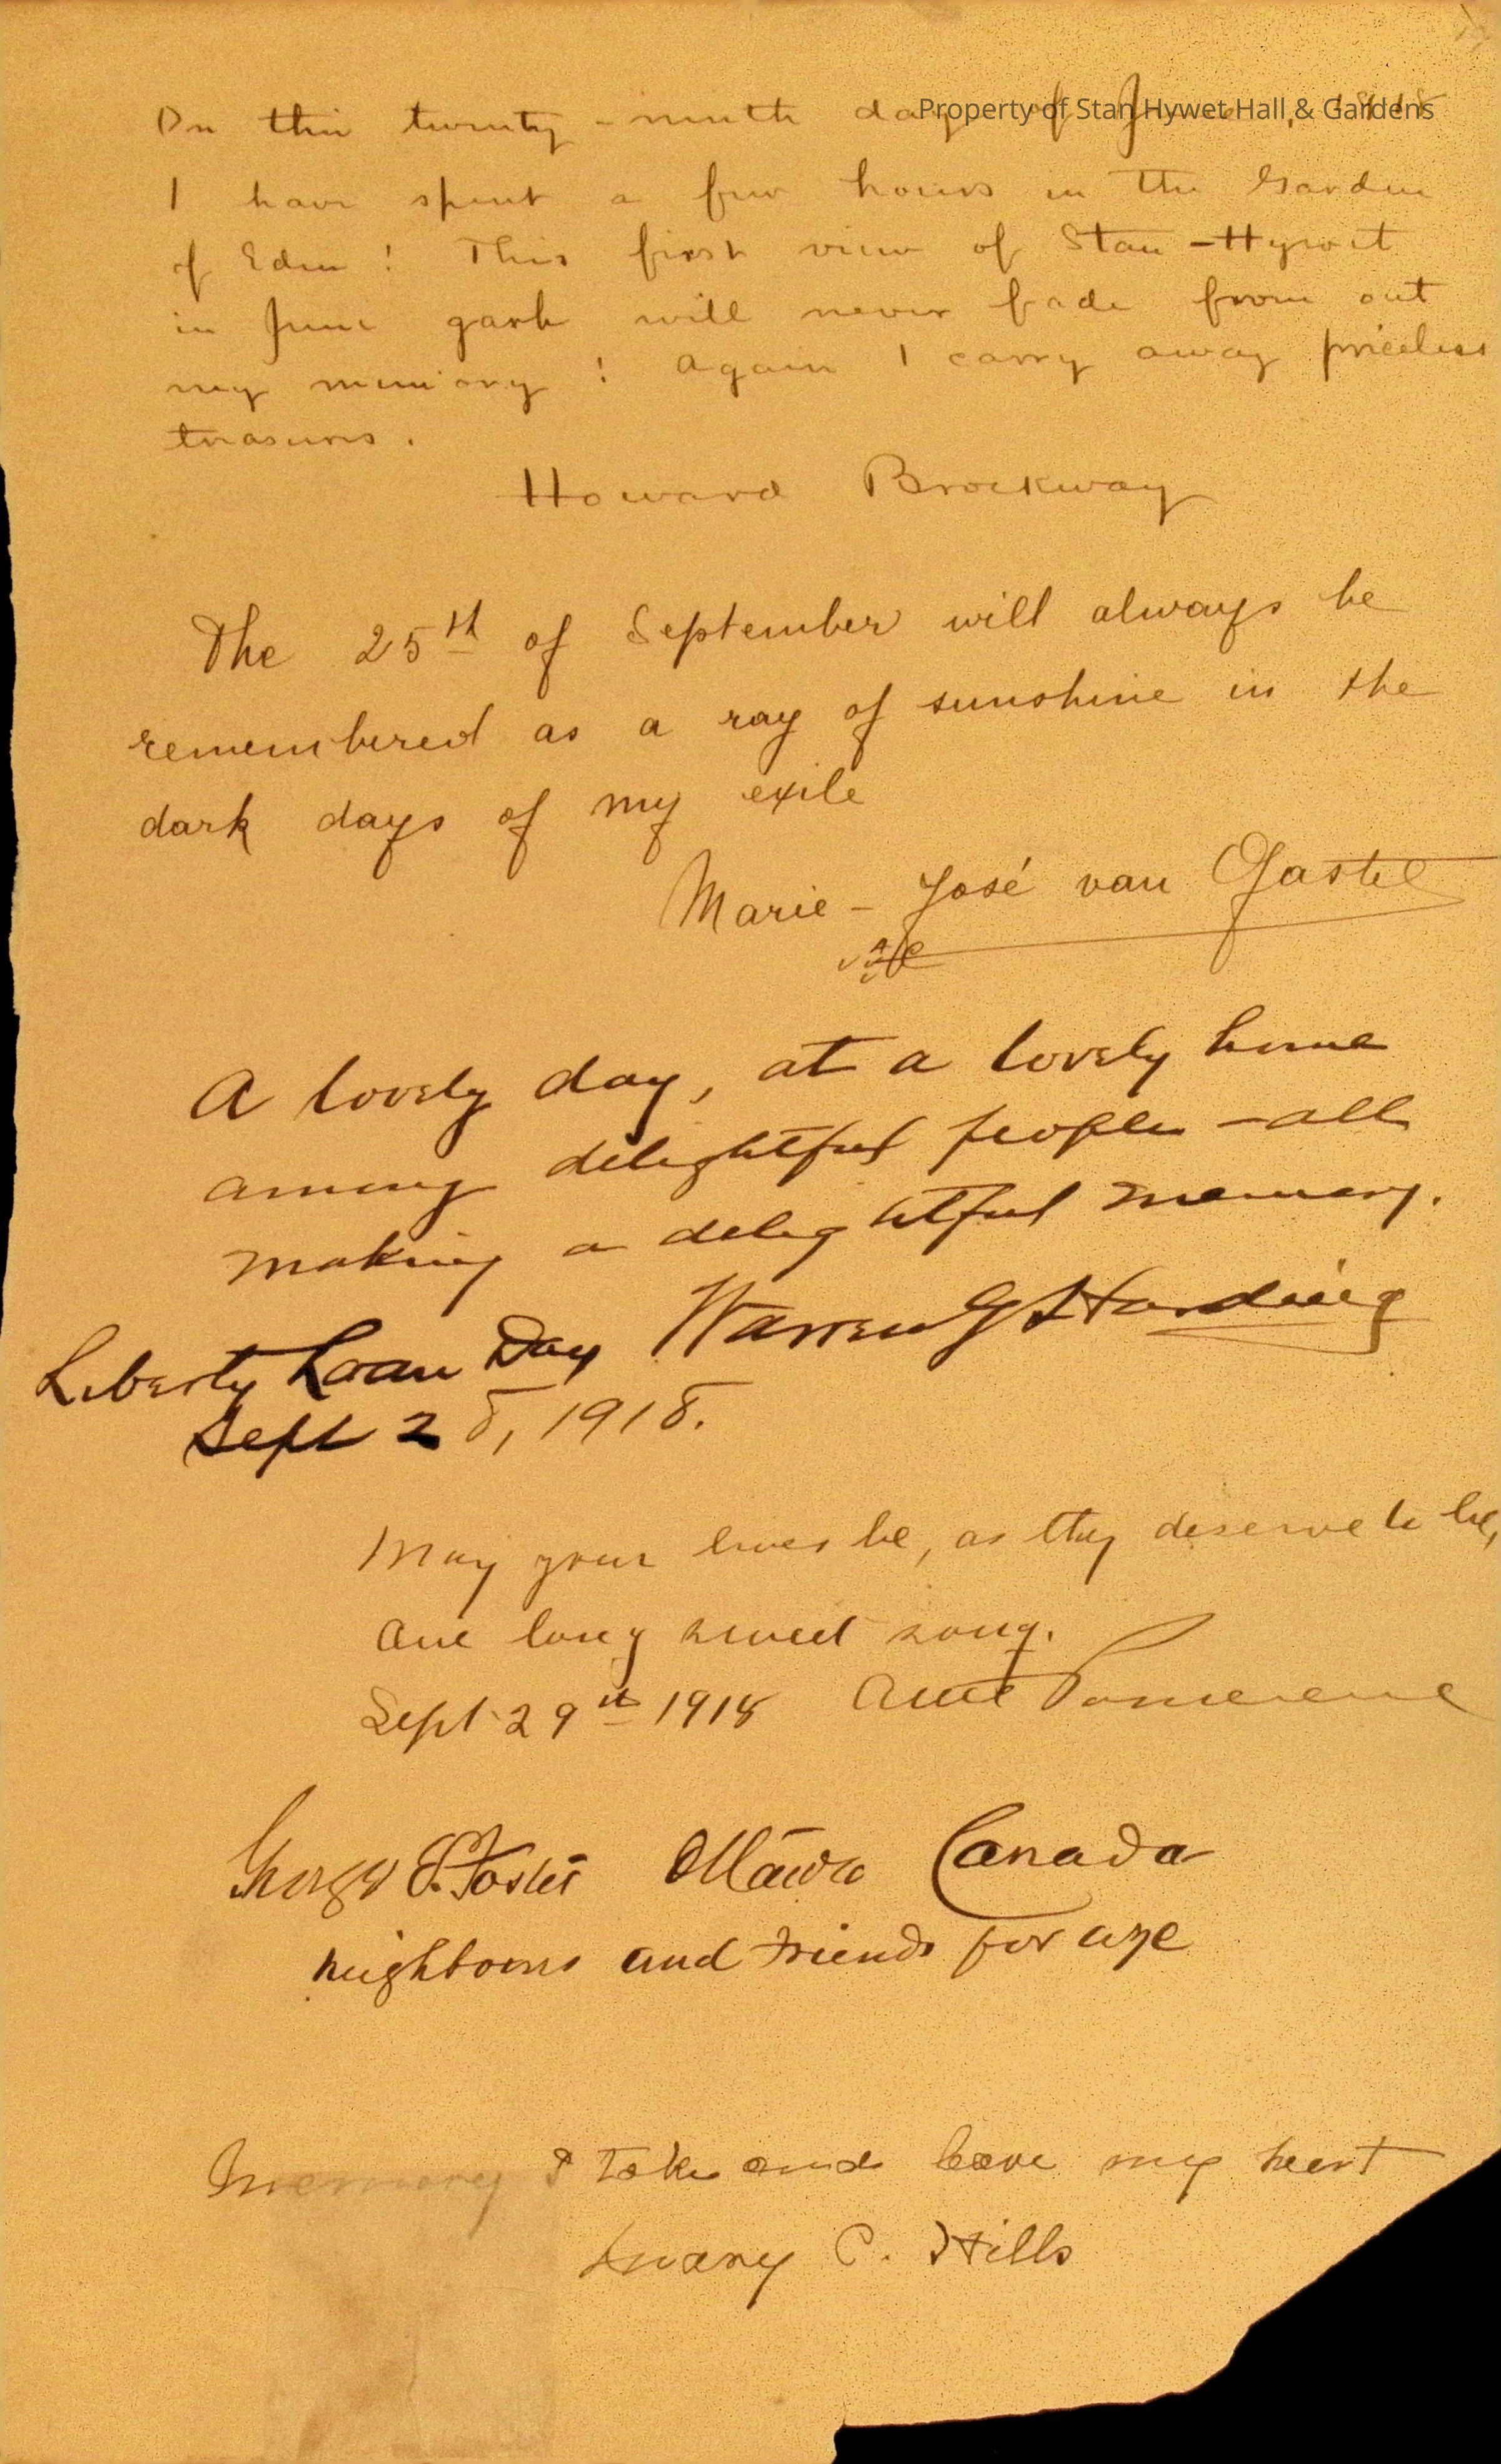 On this twenty-ninth day of June, 1918
Property of Stan Hywet Hall & Gardens
I have spent a few hours in the Garden
of Eden! This first view of Stan-Hywet
in June garb will never fade from out
my memory! Again I carry away priceless
treasures.
Howard Brockway
The 25th of September will always be
remembered as a ray of sunshine in the
dark days of my exile
Marie-José van Gastel
A lovely day, at a lovely home
among delightful people - all
making a delightful memory.
Warren G Harding
Liberty Loan Day
Sept 28, 1918.
May your lives be, as they deserve to be,
one long sweet song.
Sept. 29th 1918 Atlee Pomerene
George E. Foster Ottawa Canada
neighbours and friends for aye
Memory I take and leave my heart
Mary C. Hills